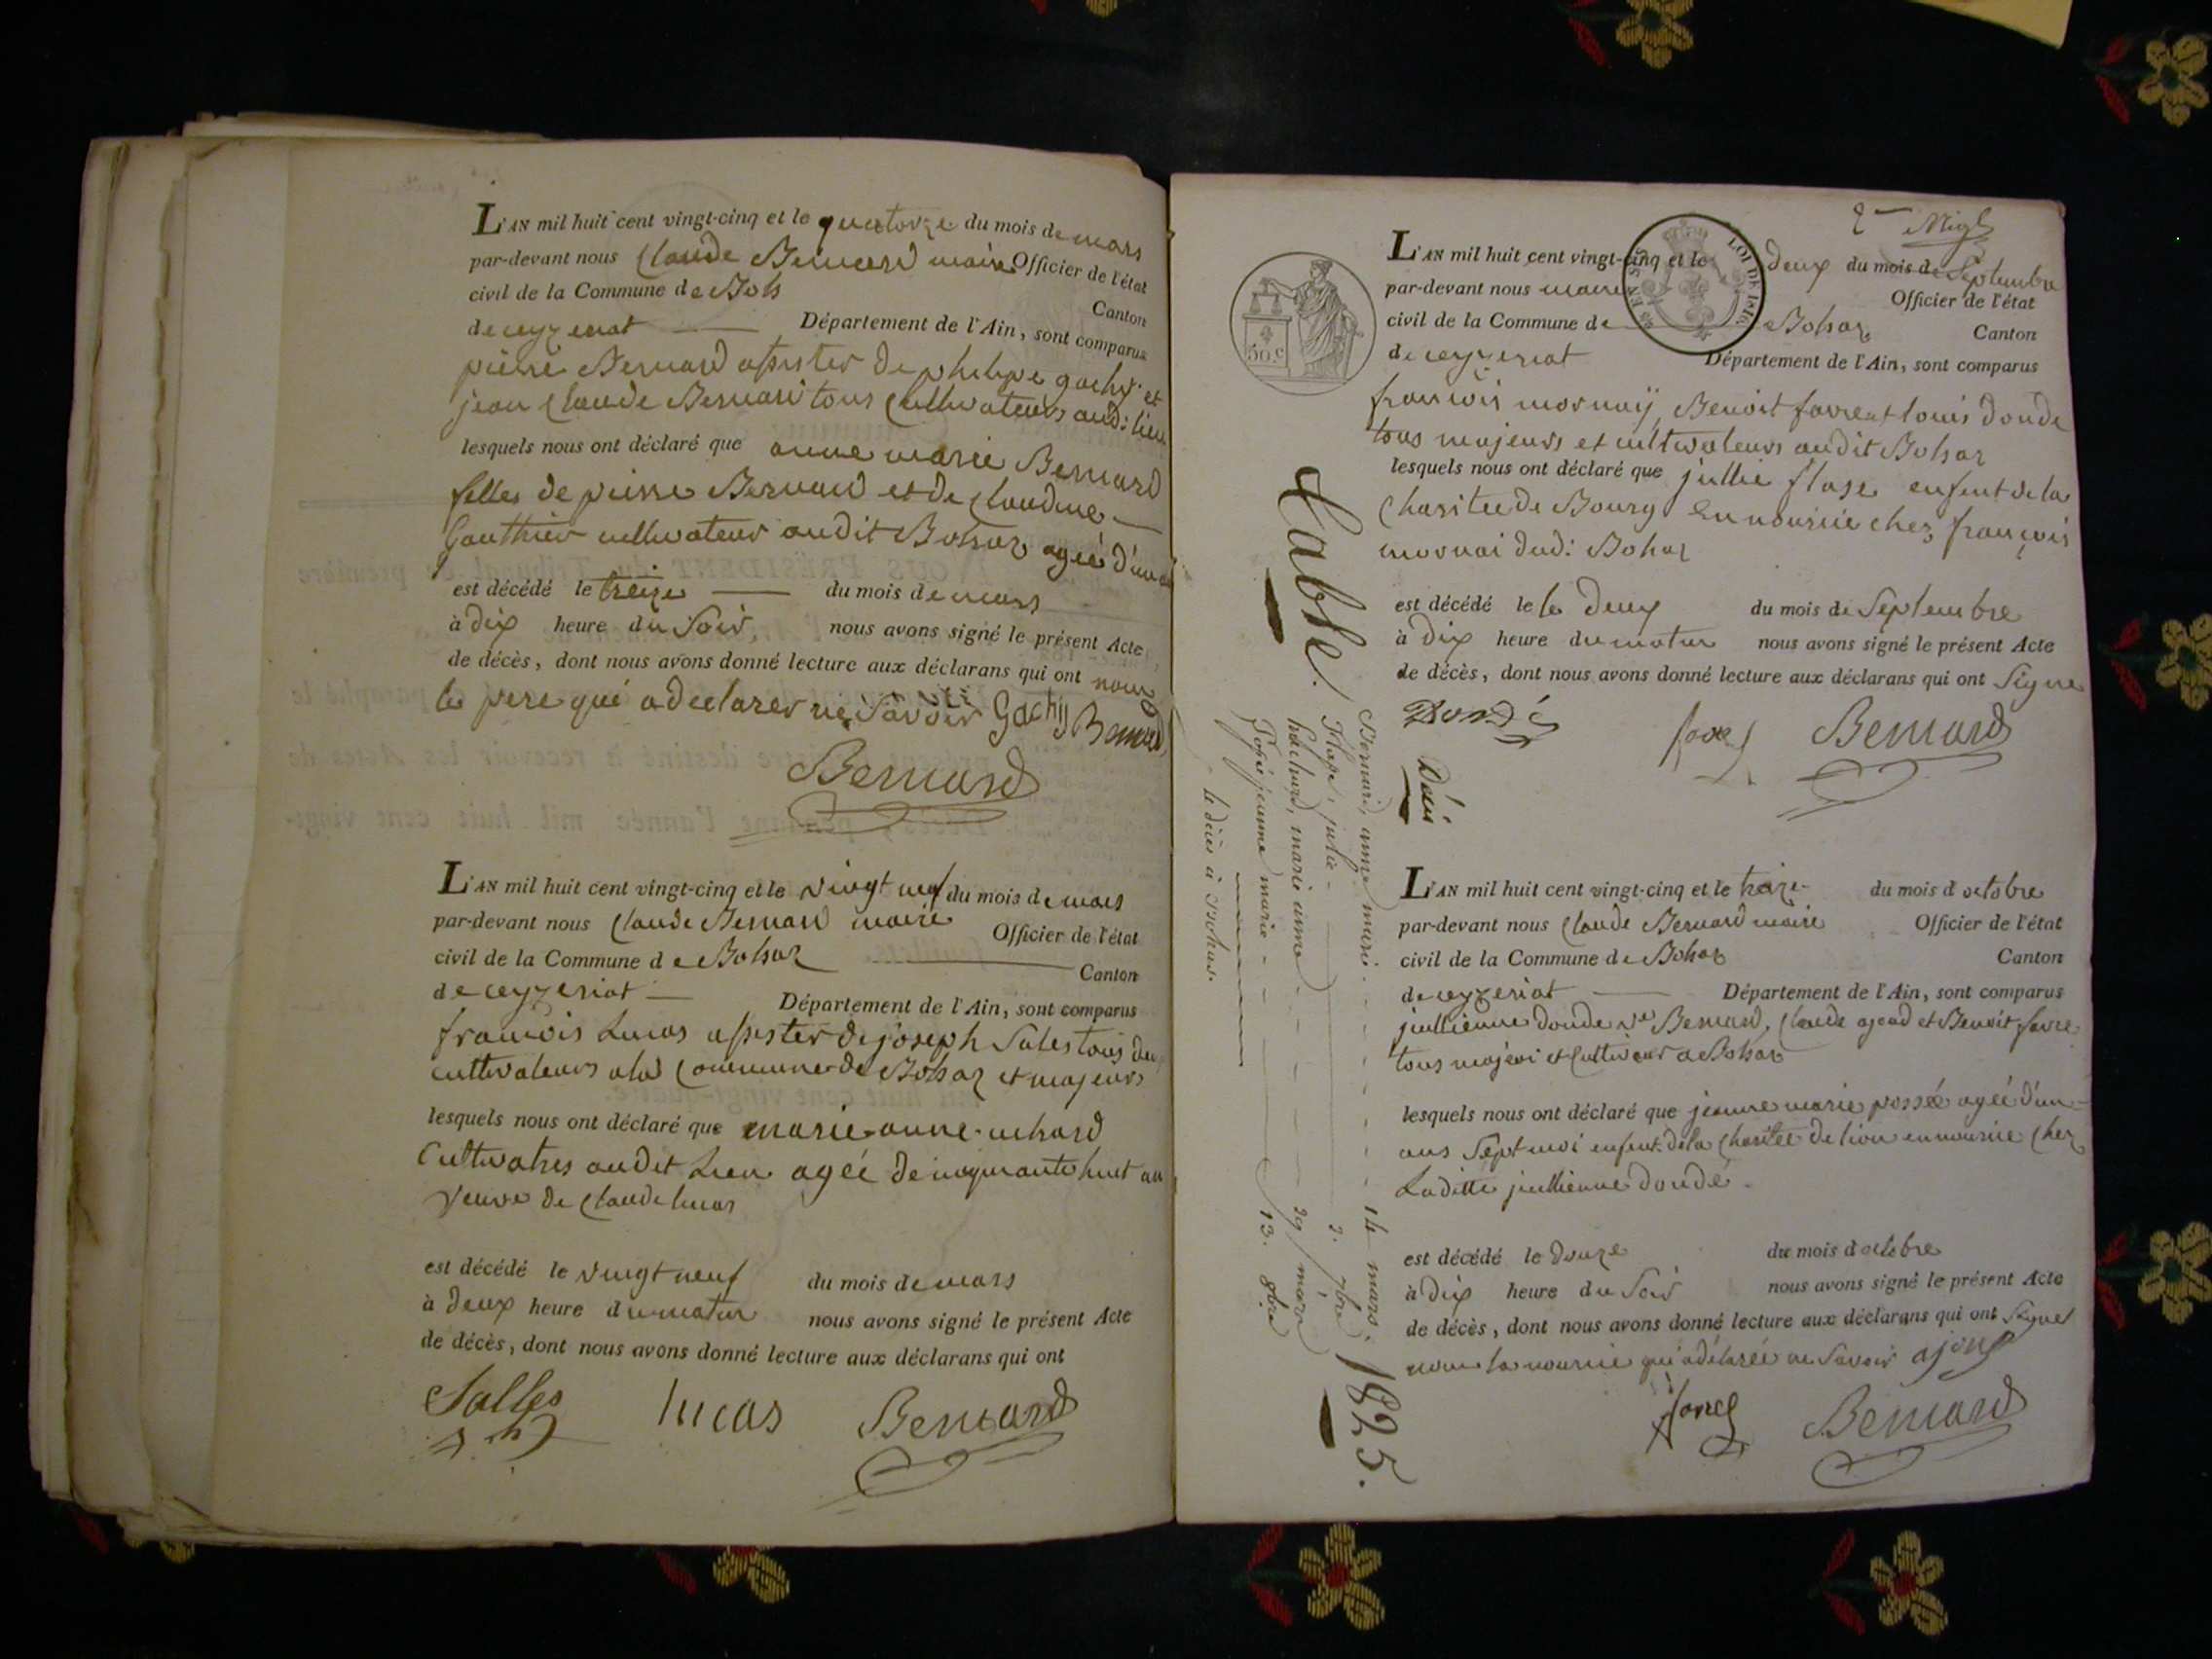 L'AN mil huit cent vingt-cinq et le quatorze du mois de mars
par-devant nous Claude Bernard maire Officier de l'état
civil de la Commune de Bohs
Canton
de ceyzeriat Département de l'Ain, sont comparus
pierre Bernard assister de philipe gachy et
jean Claude Bernard tous Cultivateurs aud: lieu
lesquels nous ont déclaré que anne marie Bernard
filles de pierre Bernard et de Claudine
Gauthier cultivateur audit Bohas agée d'un an
est décédé le treize du mois de mars
à dix heure du Soir, nous avons signé le présent Acte
de décès, dont nous avons donné lecture aux déclarans qui ont
le pere qué a declarer ne Savoir Gachy Bernard
Bernard
L'AN mil huit cent vingt-cinq et le vingt neuf du mois de mars
par-devant nous Claude Bernard maire Officier de l'état
civil de la Commune de Bohaz
Canton
de ceyzeriat Département de l'Ain, sont comparus
francois Lucas assister de joseph Sales tous deux
cultivateurs a la Commune de Bohaz et majeurs
lesquels nous ont déclaré que marie anne uchard
Cultivatres audit Lieu agée de cinquante huit an
Veuve de Claude lucas
est décédé le vingt neuf du mois de mars
à deux heure du matin nous avons signé le présent Acte
de décès, dont nous avons donné lecture aux déclarans qui ont
Salles lucas Bernard
50 c
LOI DE 1816
Table.
Décès 1825.
Bernard, anne marie 14 mars.
Flage, julie 2. 7bre
huchard, marie anne 29 mars
jeanne marie 13. 8bre
le décès à Bohas.
L'AN mil huit cent vingt-cinq et le deux du mois de Septembre
par-devant nous maire Officier de l'état
civil de la Commune de Bohaz Canton
de ceyzeriat Département de l'Ain, sont comparus
francois mornay, Benoit favre et louis donde
tous majeurs et cultivateurs audit Bohaz
lesquels nous ont déclaré que jullie flage enfent de la
Charitée de Bourg En nourice chez françois
mornai dud: Bohaz
est décédé le le Deux du mois de Septembre
à Dix heure du matin nous avons signé le présent Acte
de décès, dont nous avons donné lecture aux déclarans qui ont Signe
Dondé favre Bernard
L'AN mil huit cent vingt-cinq et le treize du mois d octobre
par-devant nous Claude Bernard maire Officier de l'état
civil de la Commune de Bohaz Canton
de ceyzeriat Département de l'Ain, sont comparus
jullienne donde ve Bernard, Claude et Benoit favre
tous majeur et Cultiveur a Bohaz
lesquels nous ont déclaré que jeanne marie agée d'un
ans Sept moi enfent de la Charitée de lion en nourice Chez
Laditte jullienne dondé
est décédé le Douze du mois d octobre
à Dix heure du Soir nous avons signé le présent Acte
de décès, dont nous avons donné lecture aux déclarans qui ont Signe
la nourice qui a déclarée ne Savoir
Bernard